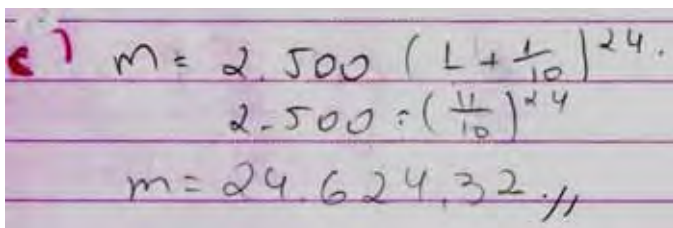 c) m = 2.500 (1 + 1/10)^24.
2.500 · (11/10)^24
m = 24.624,32.//